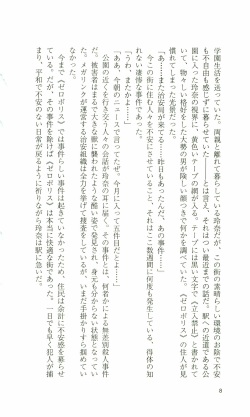 学園生活を送っていた。両親と離れて暮らしている玲奈だが、この街の素晴らしい環境のお陰で不安
も不自由も感じずに暮らせていた――とは言え、それはつい最近までの話だ。駅への近道である公
園に入った玲奈の視界に、黄色いテープの群が入る。テープには黒い文字で《立入禁止》と書かれて
いて、物々しい格好をした大勢の男が険しい顔つきで何かを調べていた。《ゼロポリス》の住人が見
慣れてしまった光景だった。
「あ……また治安局が来てる……昨日もあったんだ、あの事件……」
今この街に住む人々を不安にさせていること、それはここ数週間に何度も発生している、得体の知
れない凄惨な事件であった。
「うわ、またかよ……」
「ああ、今朝のニュースで言ってたぜ。今月に入って五件目だとよ――」
公園の近くを行き交う人々の会話が玲奈の耳に届く。その事件とは、何者かによる無差別殺人事件
だ。被害者はまるで大きな獣に襲われたような酷い姿で発見され、身元も分からない状態となってい
た。メガリンクが運営する治安組織は全力を挙げて捜査をしているが、いまだ手掛かりすら掴めてい
なかった。
今まで《ゼロポリス》では事件らしい事件は起きていなかったため、住民は余計に不安感を募らせ
ている。だが、その事件を除けば《ゼロポリス》は本当に快適な街であった。一日でも早く犯人が捕
まり、平和で不安のない日常が戻るように祈りながら玲奈は駅に急いだ。
8